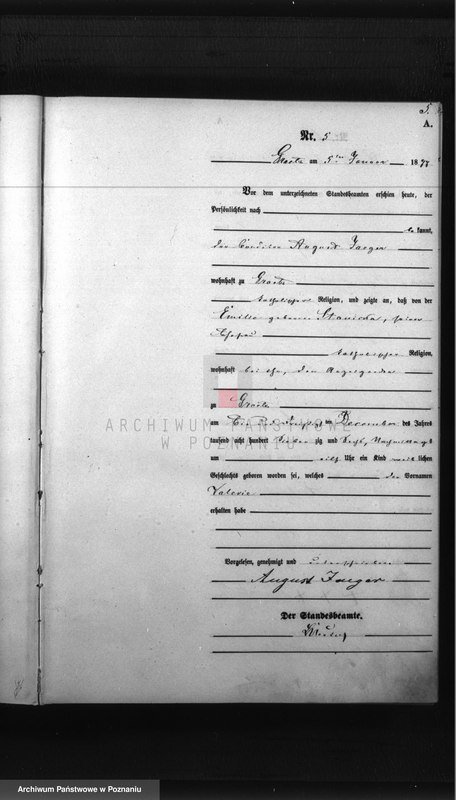 5.
A.
Nr. 5
am 5ten Januar 1877
Vor dem unterzeichneten Standesbeamten erschien heute, der
Persönlichkeit nach
bekannt,
der August Jaeger
wohnhaft zu
katholischer Religion, und zeigte an, daß von der
Emilie geborene seiner
Ehefrau
katholischer Religion,
wohnhaft bei ihm, dem Anzeigenden
zu
am Ein und dreißigsten December des Jahres
tausend acht hundert sieben zig und sechs, Nachmittags
um elf Uhr ein Kind weib lichen
Geschlechts geboren worden sei, welches den Vornamen
Valerie
erhalten habe
Vorgelesen, genehmigt und unterschrieben
August Jaeger
Der Standesbeamte.
ARCHIWUM PAŃSTWOWE
W POZNANIU
Archiwum Państwowe w Poznaniu